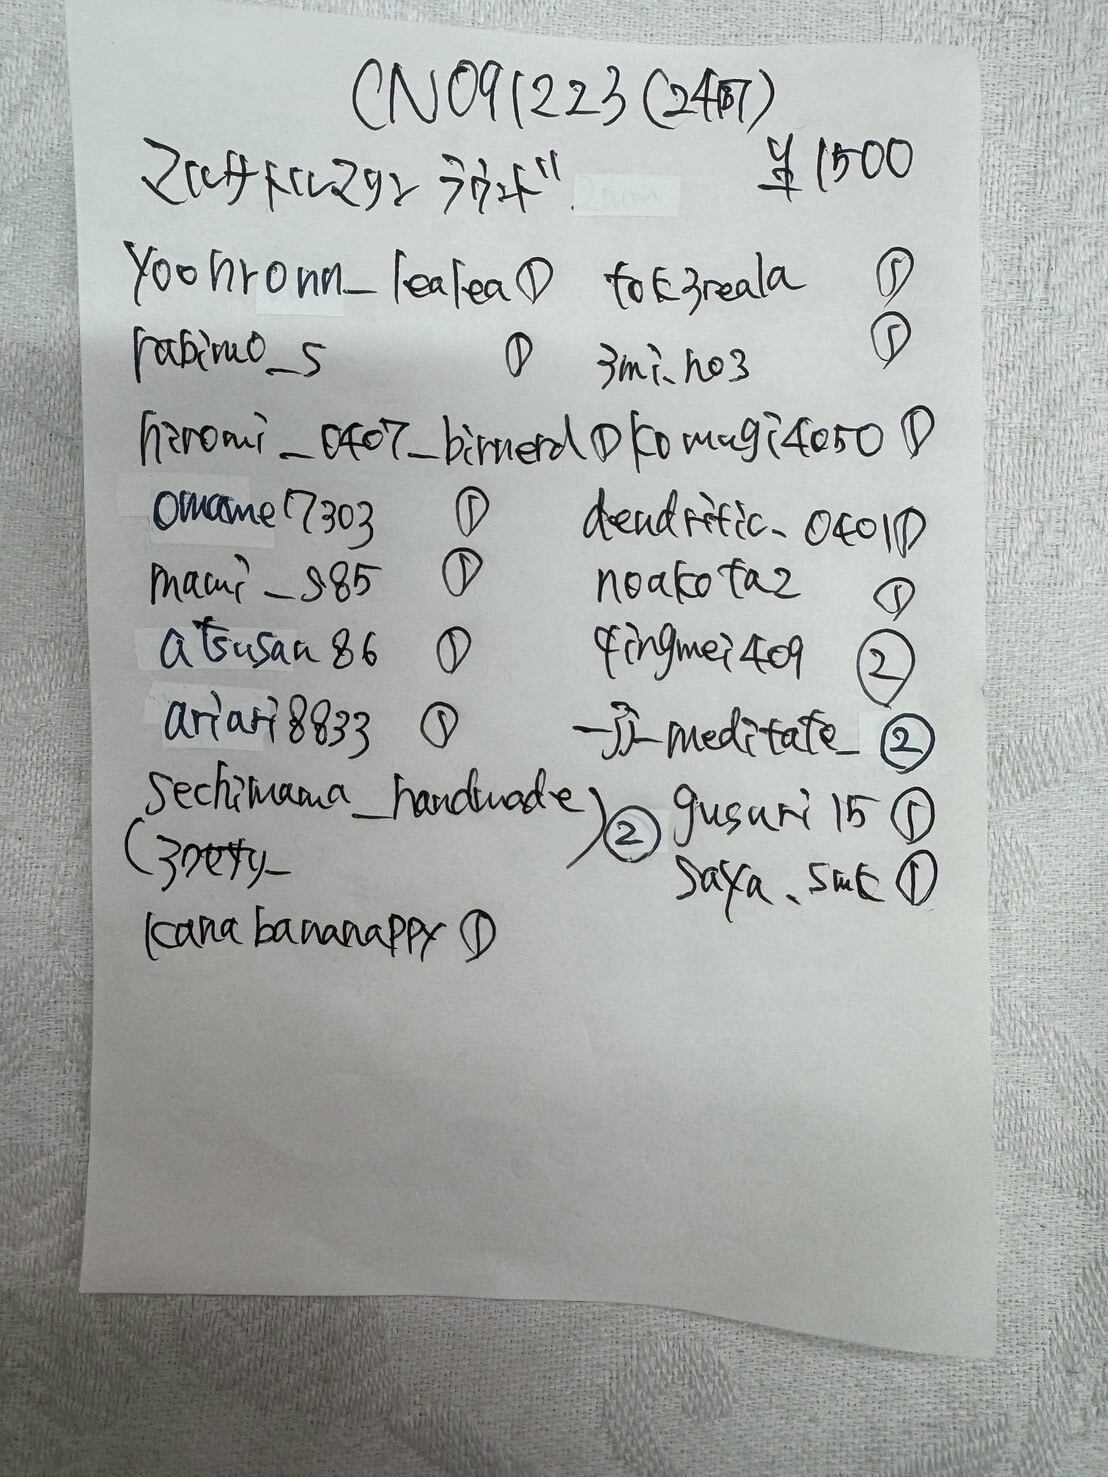 CN091223(24時)
マルチドルマリン ラウンド ¥1500
yoohronn_lealea① tok3reala ①
rabimo_s ① 3mi.no3 ①
hiromi_0407_birnerd① komugi4050①
omame17303 ① dendritic_0401①
mami_s85 ① noakota2 ①
atsusan86 ① qingmei409 ②
ariari8833 ① _jj_meditate_ ②
sechimama_handmade ② gusuri15 ①
saya.smk ①
kanabananappy ①